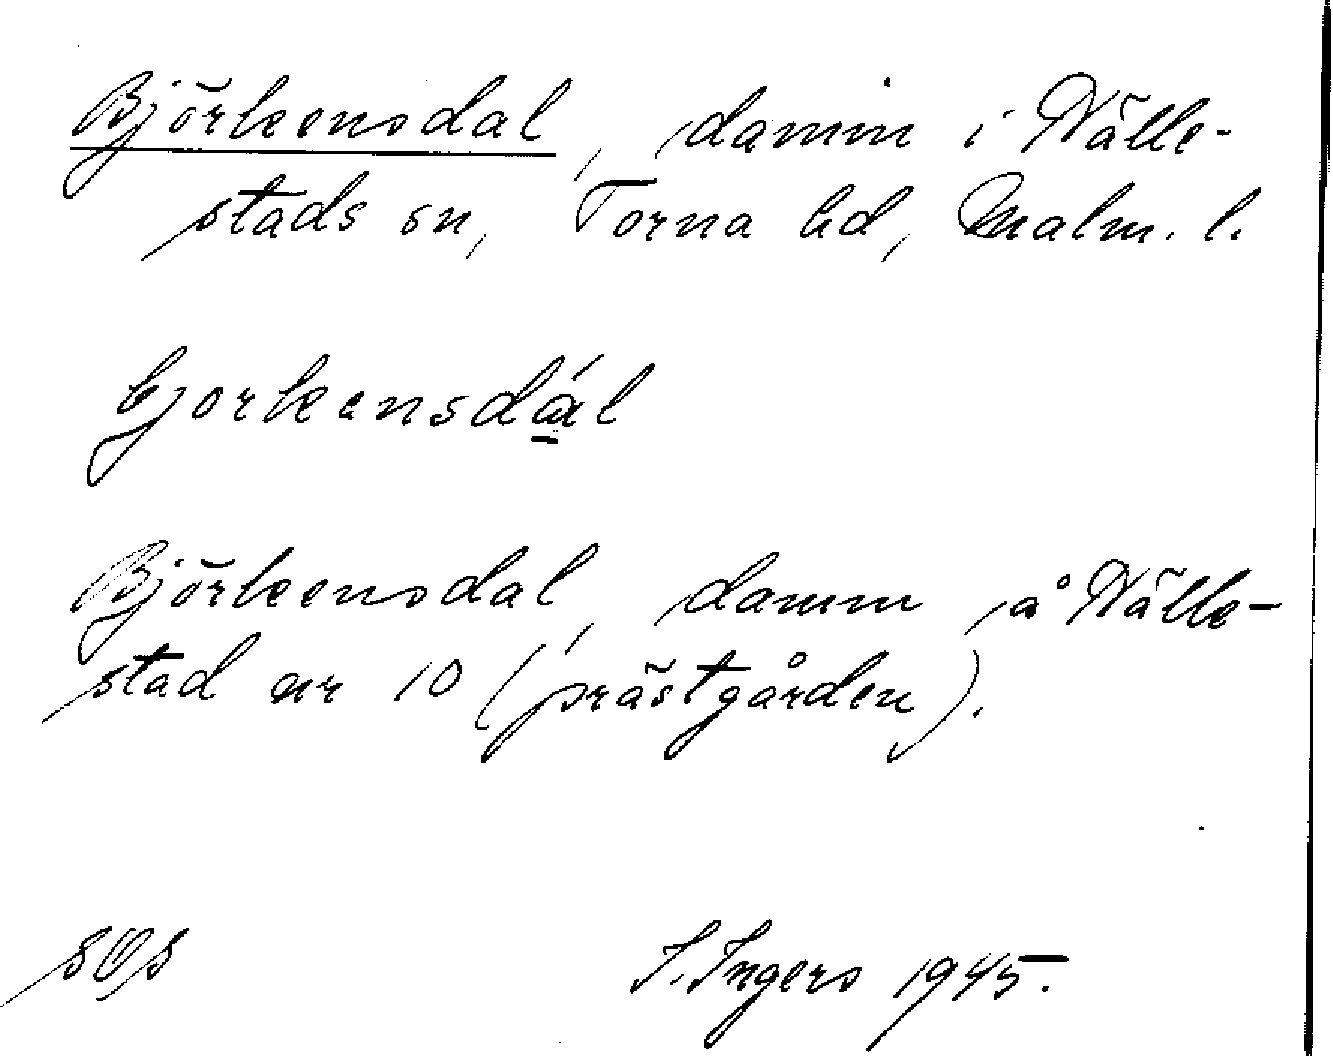 Björkensdal, damm i Hälle-
stads sn, Torna hd, Malm. l.
bjorkensdál
Björkensdal, damm å Hälle-
stad nr 10 (prästgården).
I. Ingers 1945.